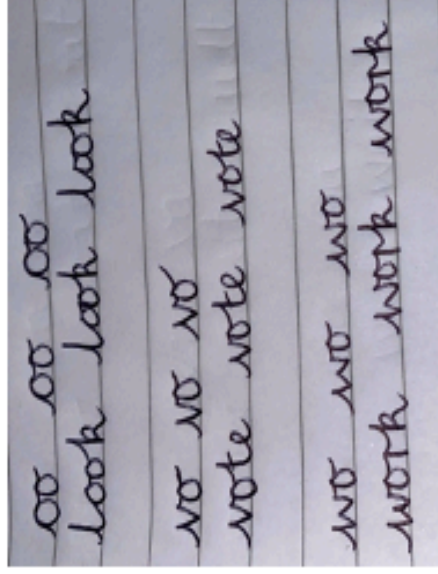 oo oo oo
look look look
vo vo vo
vote vote vote
wo wo wo
work work work